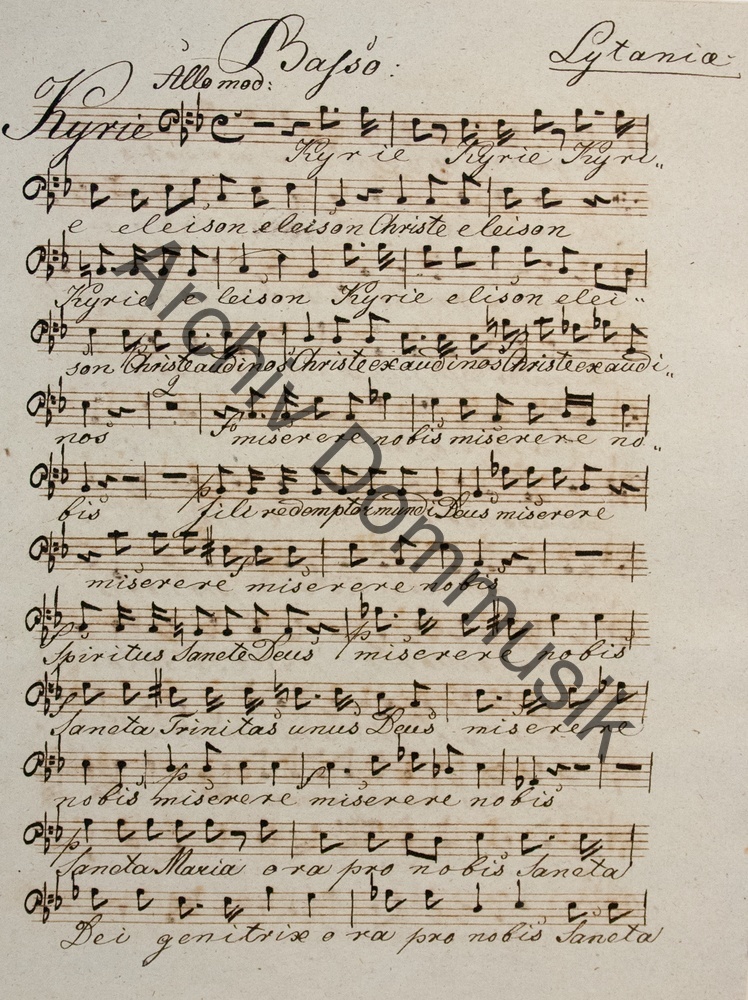 Basso:
Lytaniæ
Allo mod:
Kyrie
Kyrie Kyrie Kyri„
e eleison eleison Christe eleison
Kyrie e leison Kyrie elison elei„
son Christe audi nos Christe exaudi nos Christe exaudi„
2
nos miserere nobis miserere no„
bis fili redemptor mundi Deus miserere
miserere miserere nobis
Spiritus Sancte Deus miserere nobis
Sancta Trinitas unus Deus miserere
nobis miserere miserere nobis
Sancta Maria ora pro nobis Sancta
Dei genitrix ora pro nobis Sancta
Archiv Dommusik